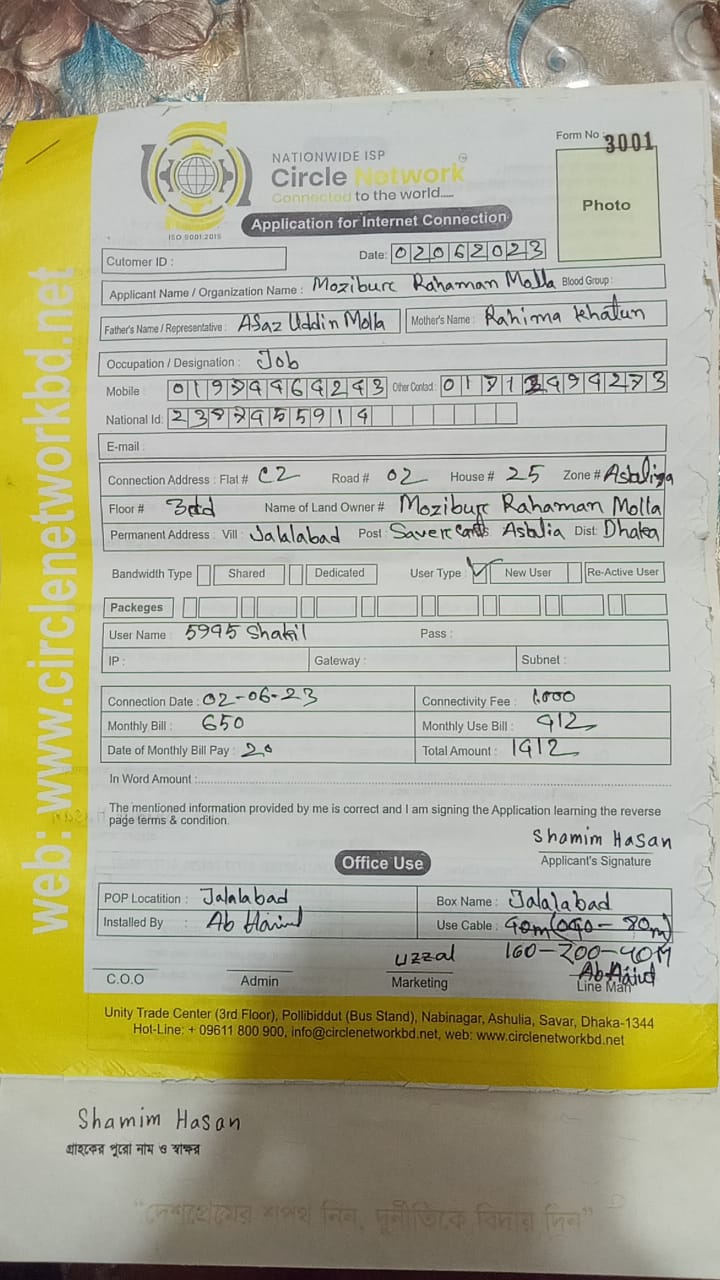 Form No : 3001
NATIONWIDE ISP
Circle Network
Connected to the world.....
ISO 9001:2015
Application for Internet Connection
Photo
Cutomer ID :
Date: 02062023
Applicant Name / Organization Name : Moziburc Rahaman Molla Blood Group :
Father's Name / Representative : Afaz Uddin Molla Mother's Name : Rahima Khatun
Occupation / Designation : Job
Mobile : Other Contact :
National Id:
E-mail :
Connection Address : Flat # C2 Road # 02 House # 25 Zone #
Floor # Name of Land Owner # Moziburc Rahaman Molla
Permanent Address : Vill : Jalalabad Post : Dist: Dhaka
Bandwidth Type Shared Dedicated User Type : New User Re-Active User
Packeges
User Name : 5995 Shakil Pass :
IP : Gateway : Subnet :
Connection Date : 02-06-23 Connectivity Fee : 1000
Monthly Bill : 650 Monthly Use Bill : 912
Date of Monthly Bill Pay : 20 Total Amount : 1912
In Word Amount :
The mentioned information provided by me is correct and I am signing the Application learning the reverse
page terms & condition.
Shamim Hasan
Applicant's Signature
Office Use
POP Locatition : Jalalabad Box Name : Jalalabad
Installed By : Use Cable :
uzzal
C.O.O Admin Marketing Line Man
Unity Trade Center (3rd Floor), Pollibiddut (Bus Stand), Nabinagar, Ashulia, Savar, Dhaka-1344
Hot-Line: + 09611 800 900, info@circlenetworkbd.net, web: www.circlenetworkbd.net
web: www.circlenetworkbd.net
Shamim Hasan
গ্রাহকের পুরো নাম ও স্বাক্ষর
“দেশপ্রেমের শপথ নিন, দুর্নীতিকে বিদায় দিন”